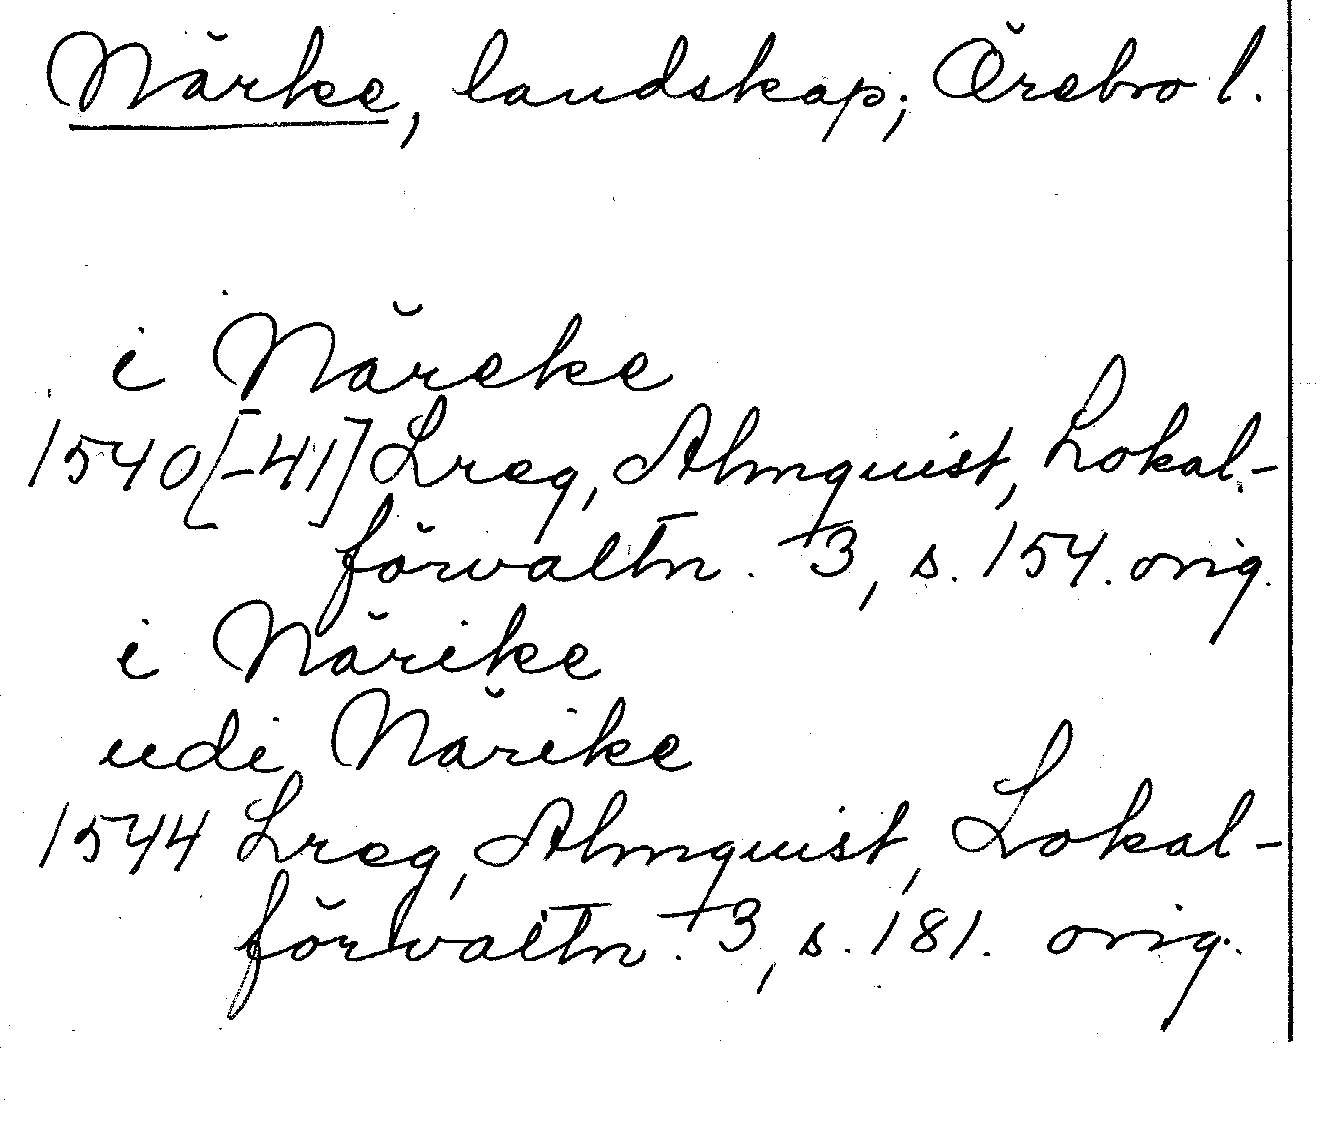 Närke, landskap; Örebro l.
i Närcke
1540[-41] Lreg, Almquist, Lokal-
förvaltn. +3, s. 154. orig.
i Närike
udi Närike
1544 Lreg, Almquist, Lokal-
förvaltn. +3, s. 181. orig.